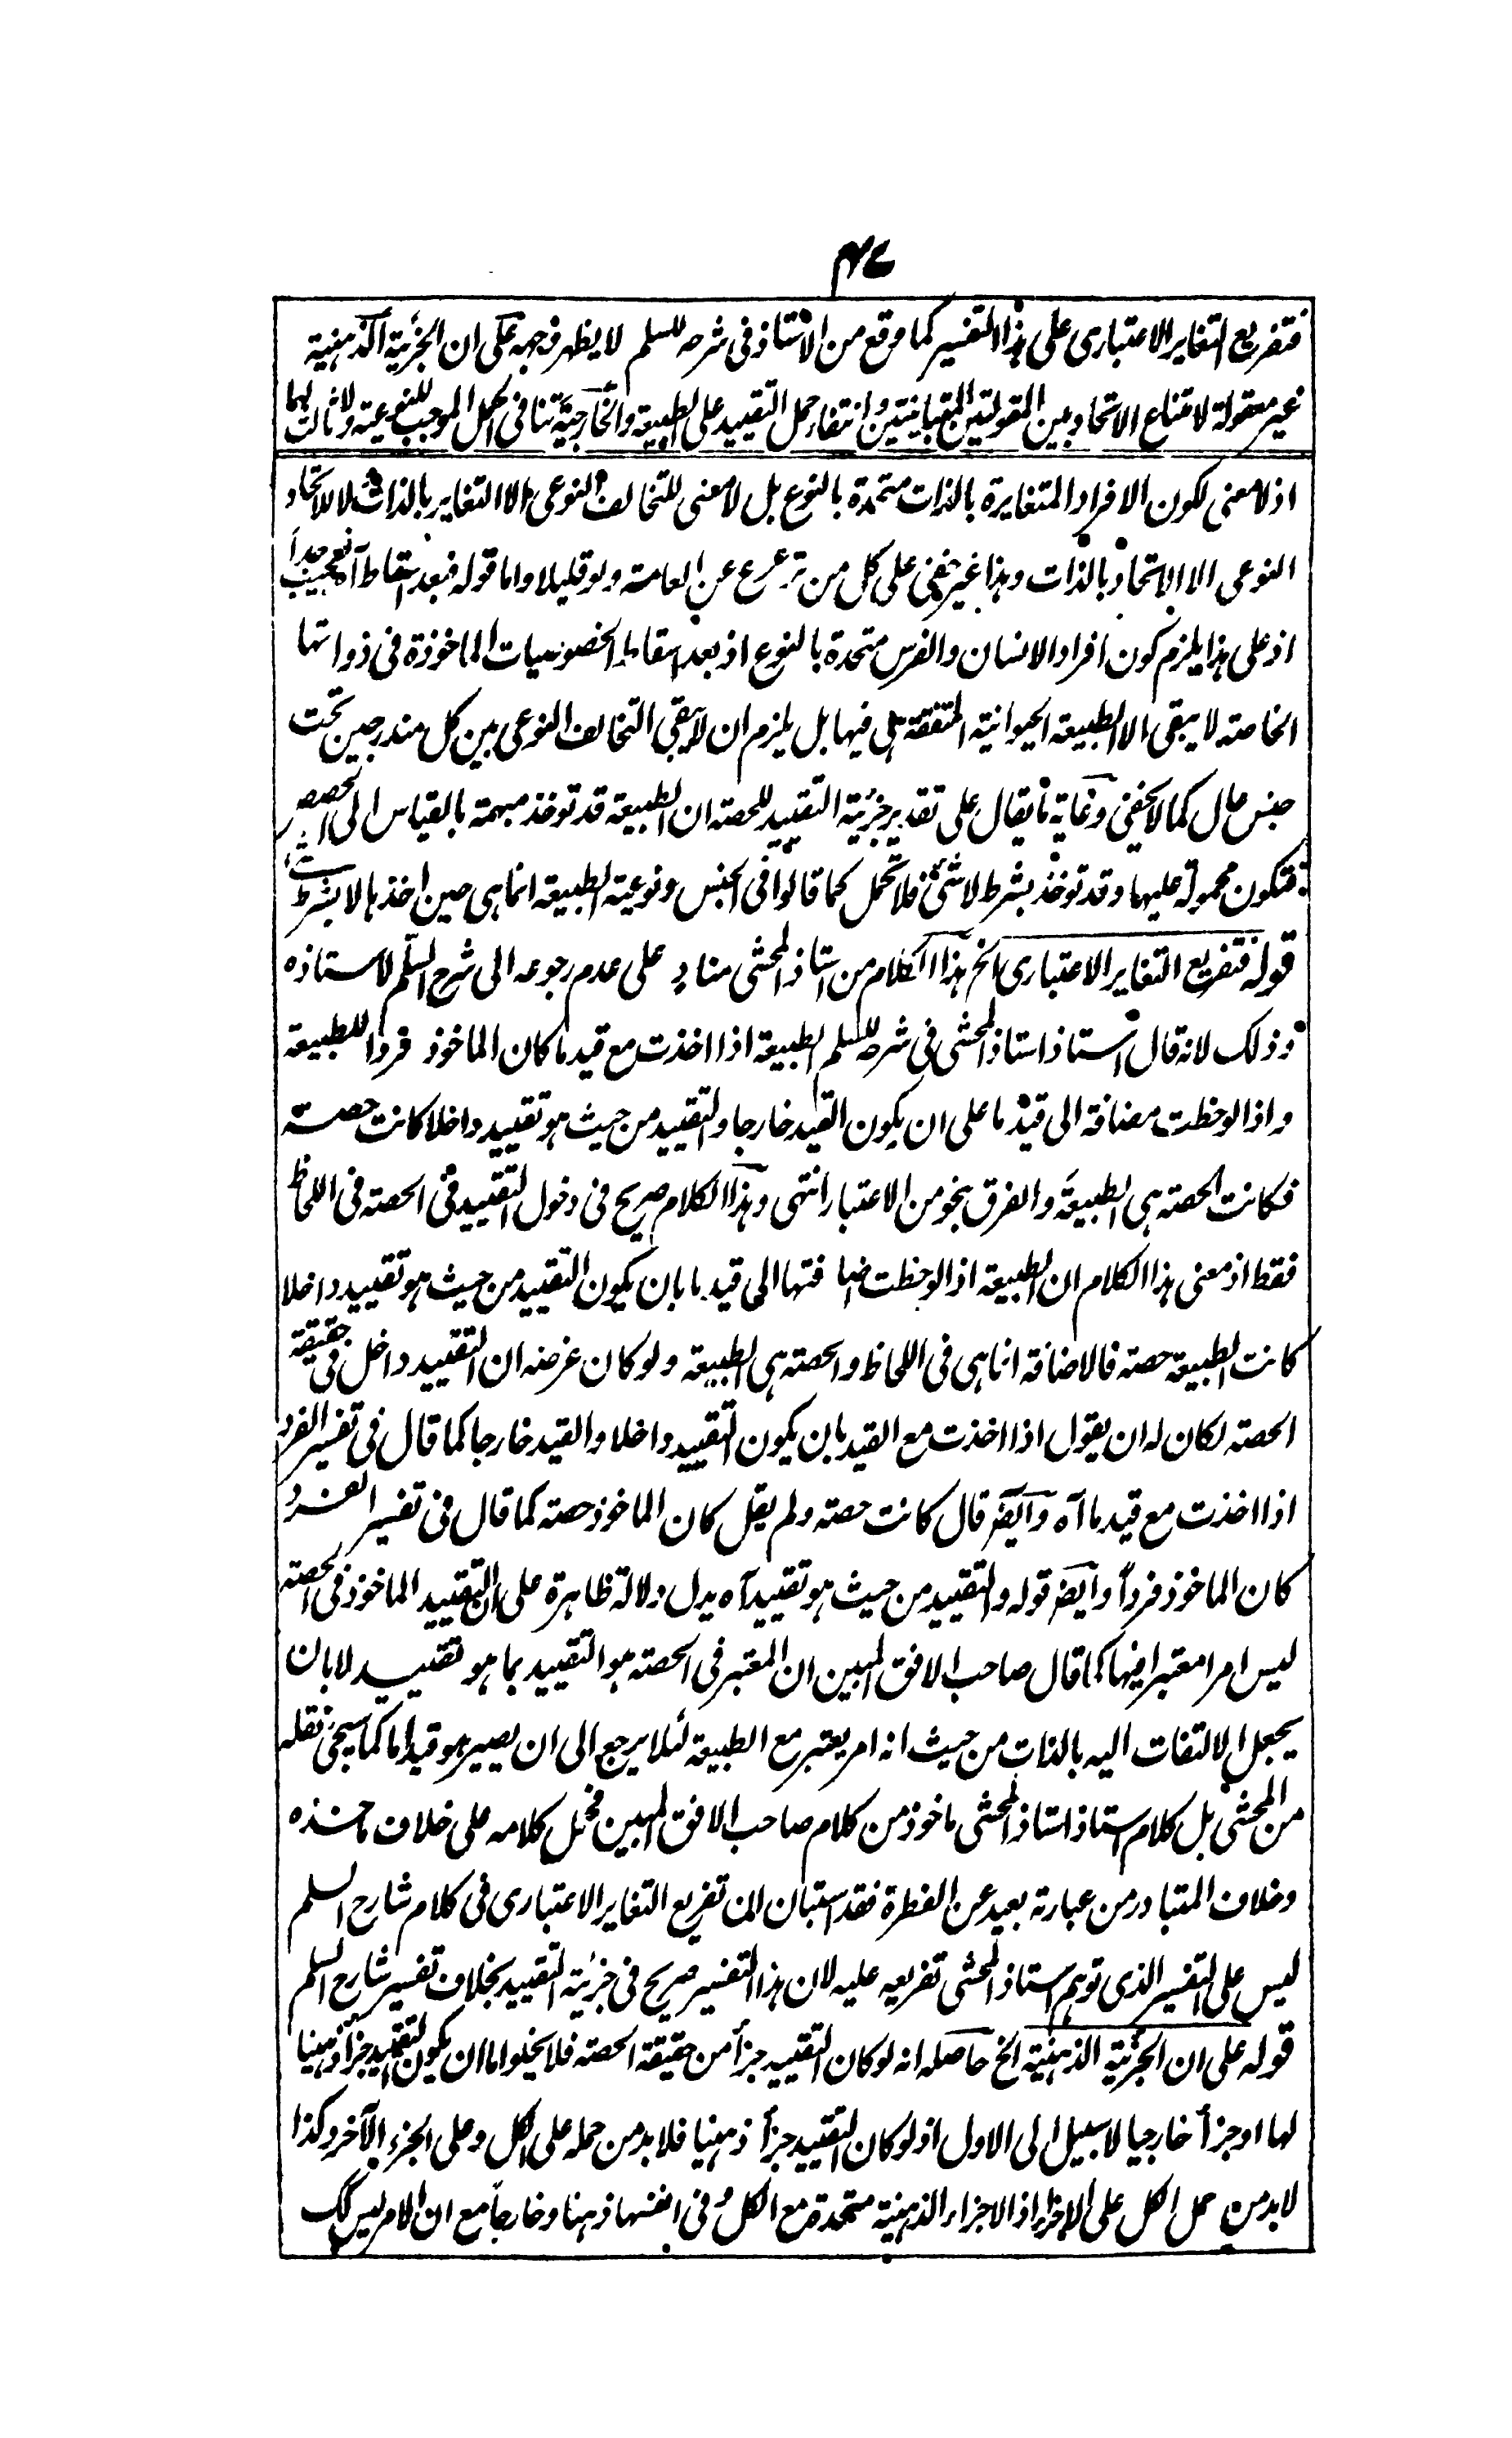 ٤٧
فتفريع التغاير الاعتباری علی هذا التفسير كما وقع من الاستاذ فی شرحه للسلم لا يظهر وجهه علی ان الجزئية الذهنية
غير معقولة لامتناع الاتحاد بين المقولتين المتباينتين وانتفاء حمل التقييد علی الطبيعة والخارجية تنافی الحمل الموجب للنوعية ولا ثالث لهما
اذ لا معنی لكون الافراد المتغايرة بالذات متحدة بالنوع بل لا معنی للتخالف النوعی الا التغاير بالذات ولا للاتحاد
النوعی الا الاتحاد بالذات وهذا غير خفی علی كل من ترعرع عن العامة ولو قليلا واما قوله فبعد اسقاط آه فعجيب جداً
اذ علی هذا يلزم كون افراد الانسان والفرس متحدة بالنوع اذ بعد اسقاط الخصوصيات الماخوذة فی ذواتها
الخاصة لا يبقی الا الطبيعة الحيوانية المتفقة هی فيها بل يلزم ان لا يبقی التخالف النوعی بين كل مندرجين تحت
جنس عال كما لا يخفی وغاية ما يقال علی تقدير جزئية التقييد للحصة ان الطبيعة قد توخذ مبهمة بالقياس الی الحصص
فتكون محمولة عليها وقد توخذ بشرط لا شئ فلا تحمل كما قالوا فی الجنس ونوعية الطبيعة انما هی حين اخذها لا بشرط شے
قوله فتفريع التغاير الاعتباری الخ هذا الكلام من استاذ المحشی مناد علی عدم رجوعه الی شرح السلم لاستاذه
وذلك لانه قال استاذ استاذ المحشی فی شرحه للسلم الطبيعة اذا اخذت مع قيد ما كان الماخوذ فردا للطبيعة
واذا لوحظت مضافة الی قيد ما علی ان يكون القيد خارجا والتقييد من حيث هو تقييد داخلا كانت حصة
فكانت الحصة هی الطبيعة والفرق بنحو من الاعتبار انتهی وهذا الكلام صريح فی دخول التقييد فی الحصة فی اللحاظ
فقط اذ معنی هذا الكلام ان الطبيعة اذا لوحظت اضافتها الی قيد ما بان يكون التقييد من حيث هو تقييد داخلا
كانت الطبيعة حصة فالاضافة انما هی فی اللحاظ والحصة هی الطبيعة ولو كان غرضه ان التقييد داخل فی حقيقة
الحصة لكان له ان يقول اذا اخذت مع القيد بان يكون التقييد داخلا والقيد خارجا كما قال فی تفسير الفرد
اذا اخذت مع قيد ما آه وايضر قال كانت حصة ولم يقل كان الماخوذ حصة كما قال فی تفسير الفرد
كان الماخوذ فرداً وايضر قوله والتقييد من حيث هو تقييد آه يدل دلالة ظاهرة علی ان التقييد الماخوذ فی الحصة
ليس امرا معتبرا فيها كما قال صاحب الافق المبين ان المعتبر فی الحصة هو التقييد بما هو تقييد لا بان
يجعل الالتفات اليه بالذات من حيث انه امر يعتبر مع الطبيعة لئلا يرجع الی ان يصير هو قيدا ما كما سيجئ نقله
من المحشی بل كلام استاذ استاذ المحشی ماخوذ من كلام صاحب الافق المبين فحمل كلامه علی خلاف ماخذه
وخلاف المتبادر من عبارته بعيد عن الفطرة فقد استبان ان تفريع التغاير الاعتباری فی كلام شارح السلم
ليس علی التفسير الذی توهم استاذ المحشی تفريعه عليه لان هذا التفسير صريح فی جزئية التقييد بخلاف تفسير شارح السلم
قوله علی ان الجزئية الذهنية الخ حاصله انه لو كان التقييد جزأ من حقيقة الحصة فلا يخلو اما ان يكون التقييد جزأ ذهنيا
لها او جزأ خارجيا لا سبيل الی الاول اذ لو كان التقييد جزأ ذهنيا فلا بد من حمله علی الكل وعلی الجزء الآخر وكذا
لا بد من حمل الكل علی الاجزاء اذ الاجزاء الذهنية متحدة مع الكل فی انفسها ذهنا وخارجاً مع ان الامر ليس كك